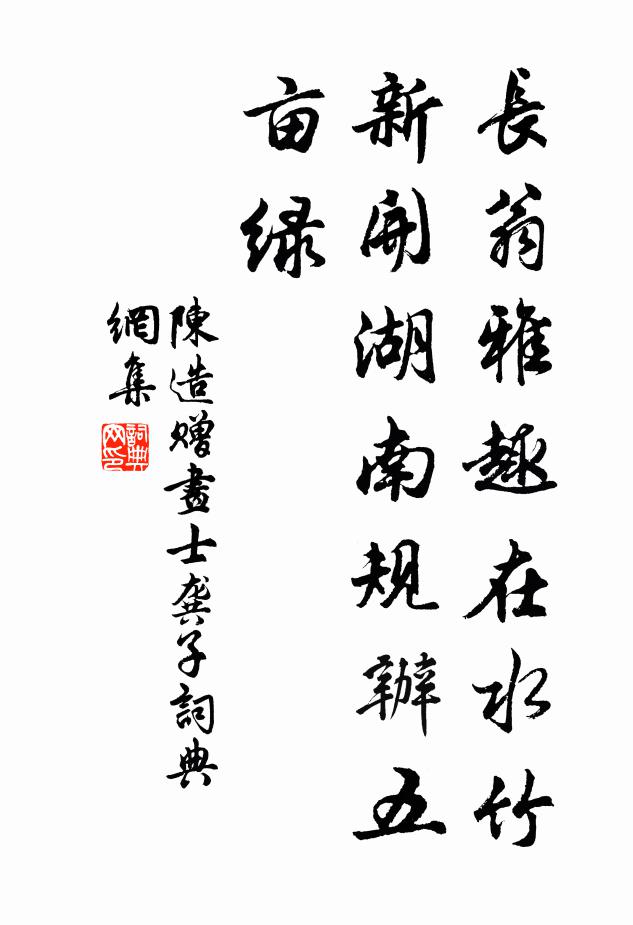 長翁雅趣在水竹
新開湖南規辦五
亩绿
陳造贈畫士龚子詞典
網集
詞典
网印